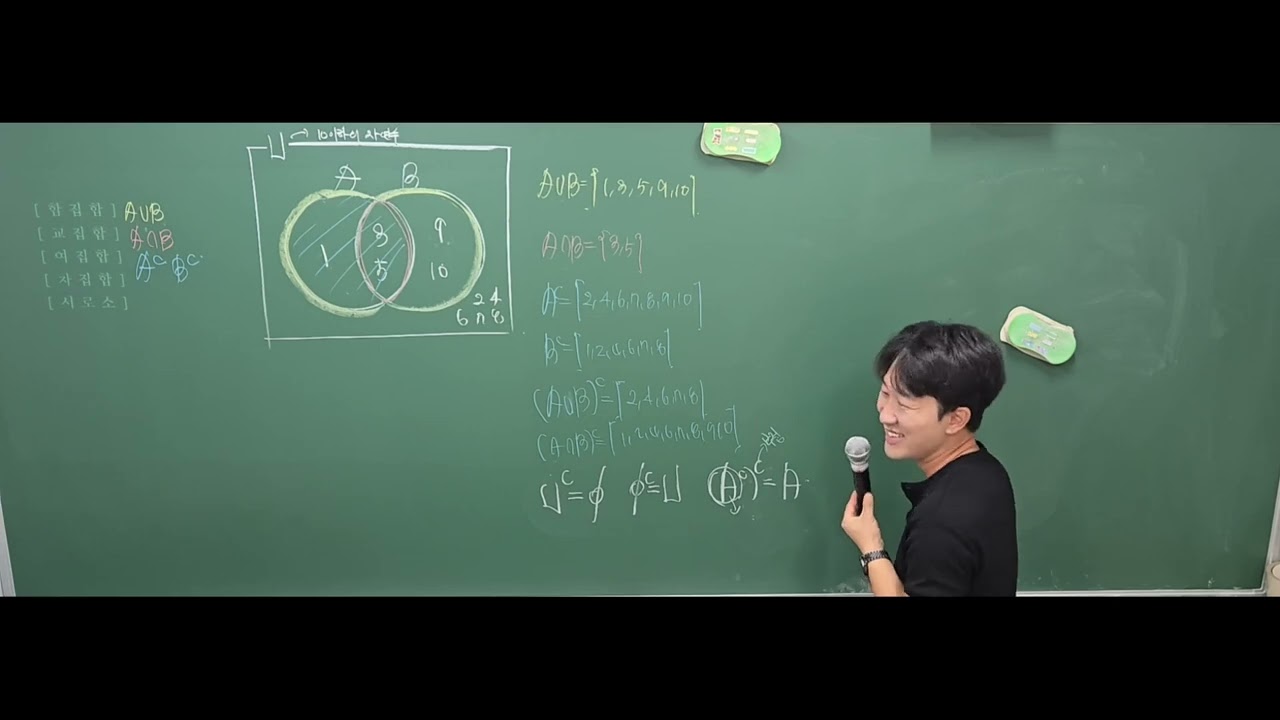 U → 10이하의 자연수
A B
1 3 5 9 10
2 4
6 7 8
[ 합 집 합 ] A∪B
[ 교 집 합 ] A∩B
[ 여 집 합 ] A^C B^C
[ 차 집 합 ]
[ 서 로 소 ]
A∪B={1,3,5,9,10}
A∩B={3,5}
A^C={2,4,6,7,8,9,10}
B^C={1,2,4,6,7,8}
(A∪B)^C={2,4,6,7,8}
(A∩B)^C={1,2,4,6,7,8,9,10}
U^C=∅ ∅^C=U (A^C)^C=A